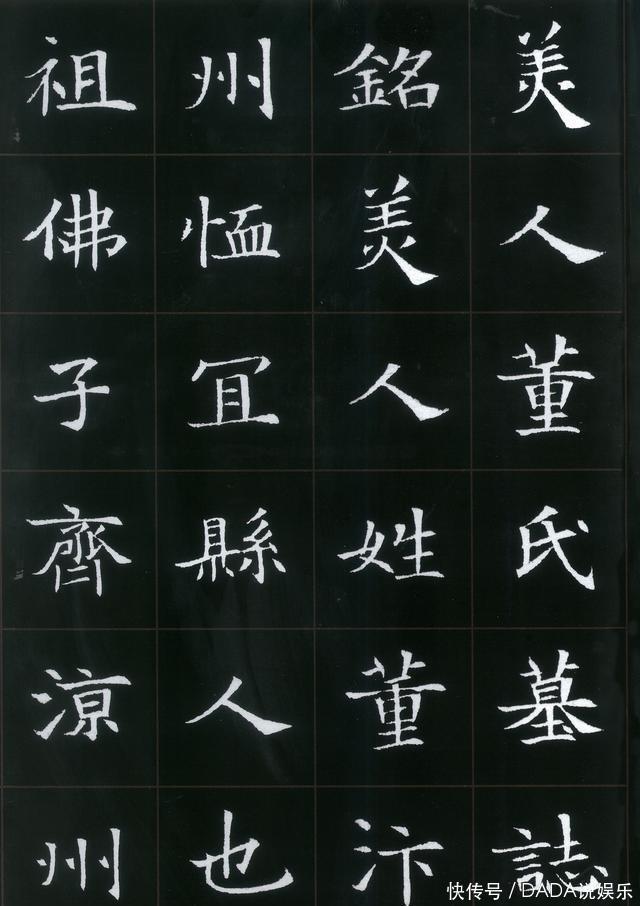 美人董氏墓誌
銘美人姓董汴
州恤冝縣人也
祖佛子齊涼州
快传号/DADA说娱乐